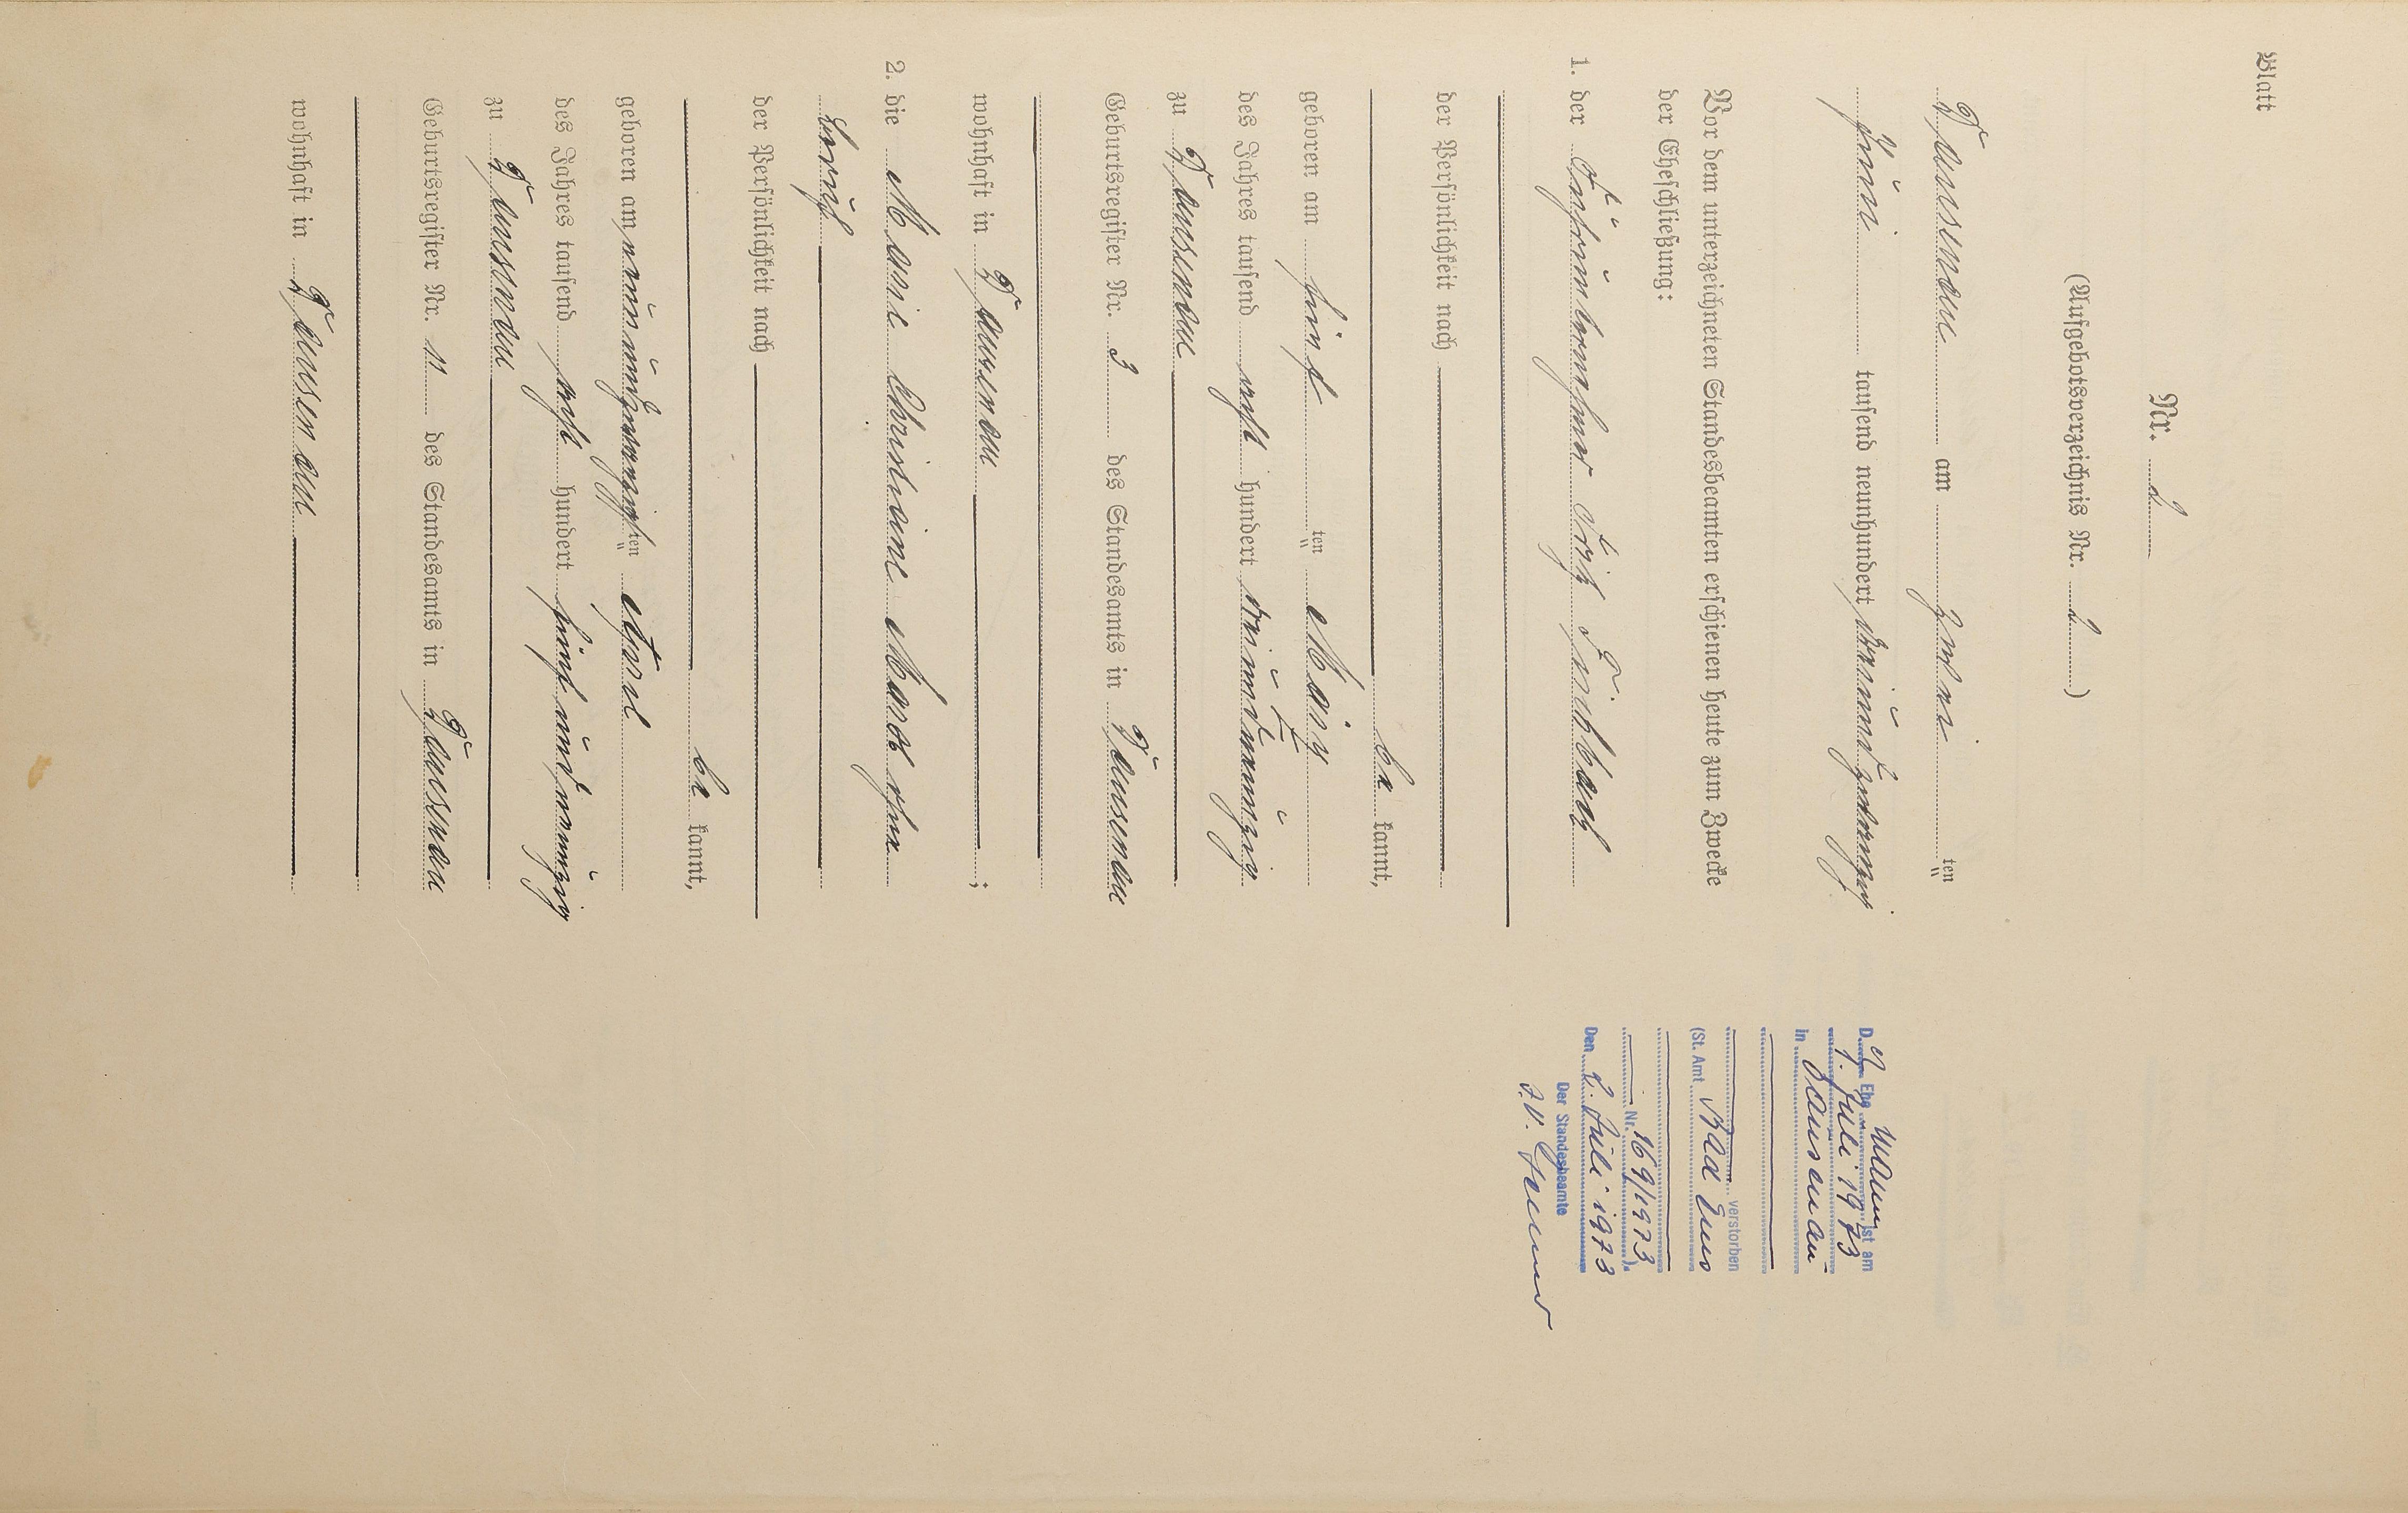 Blatt
Nr. 2
(Aufgebotsverzeichnis Nr. 2)
Dausenau am zwei ten
Juni tausend neunhundert dreiundzwanzig
Vor dem unterzeichneten Standesbeamten erschienen heute zum Zwecke
der Eheschließung:
1. der Fuhrunternehmer Fritz
der Persönlichkeit nach
be kannt,
geboren am fünf ten März
des Jahres tausend acht hundert dreiundneunzig
zu Dausenau
Geburtsregister Nr. 3 des Standesamts in Dausenau
wohnhaft in Dausenau ;
2. die Marie Christine ohne
Beruf
der Persönlichkeit nach
be kannt,
geboren am neunundzwanzigsten April
des Jahres tausend acht hundert fünfundneunzig
zu Dausenau
Geburtsregister Nr. 11 des Standesamts in Dausenau
wohnhaft in Dausenau
Der Ehemann ist am
1. Juli 1973
in Dausenau
verstorben
(St. Amt Bad Ems
Nr. 169/1973).
Den 2. Juli 1973
Der Standesbeamte
I.V.